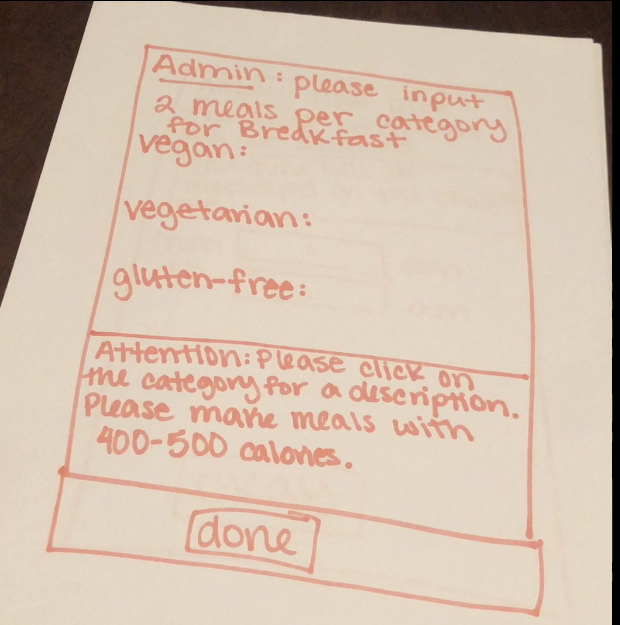 Admin: please input
2 meals per category
for Breakfast
vegan:
vegetarian:
gluten-free:
Attention: Please click on
the category for a description.
Please make meals with
400-500 calories.
done